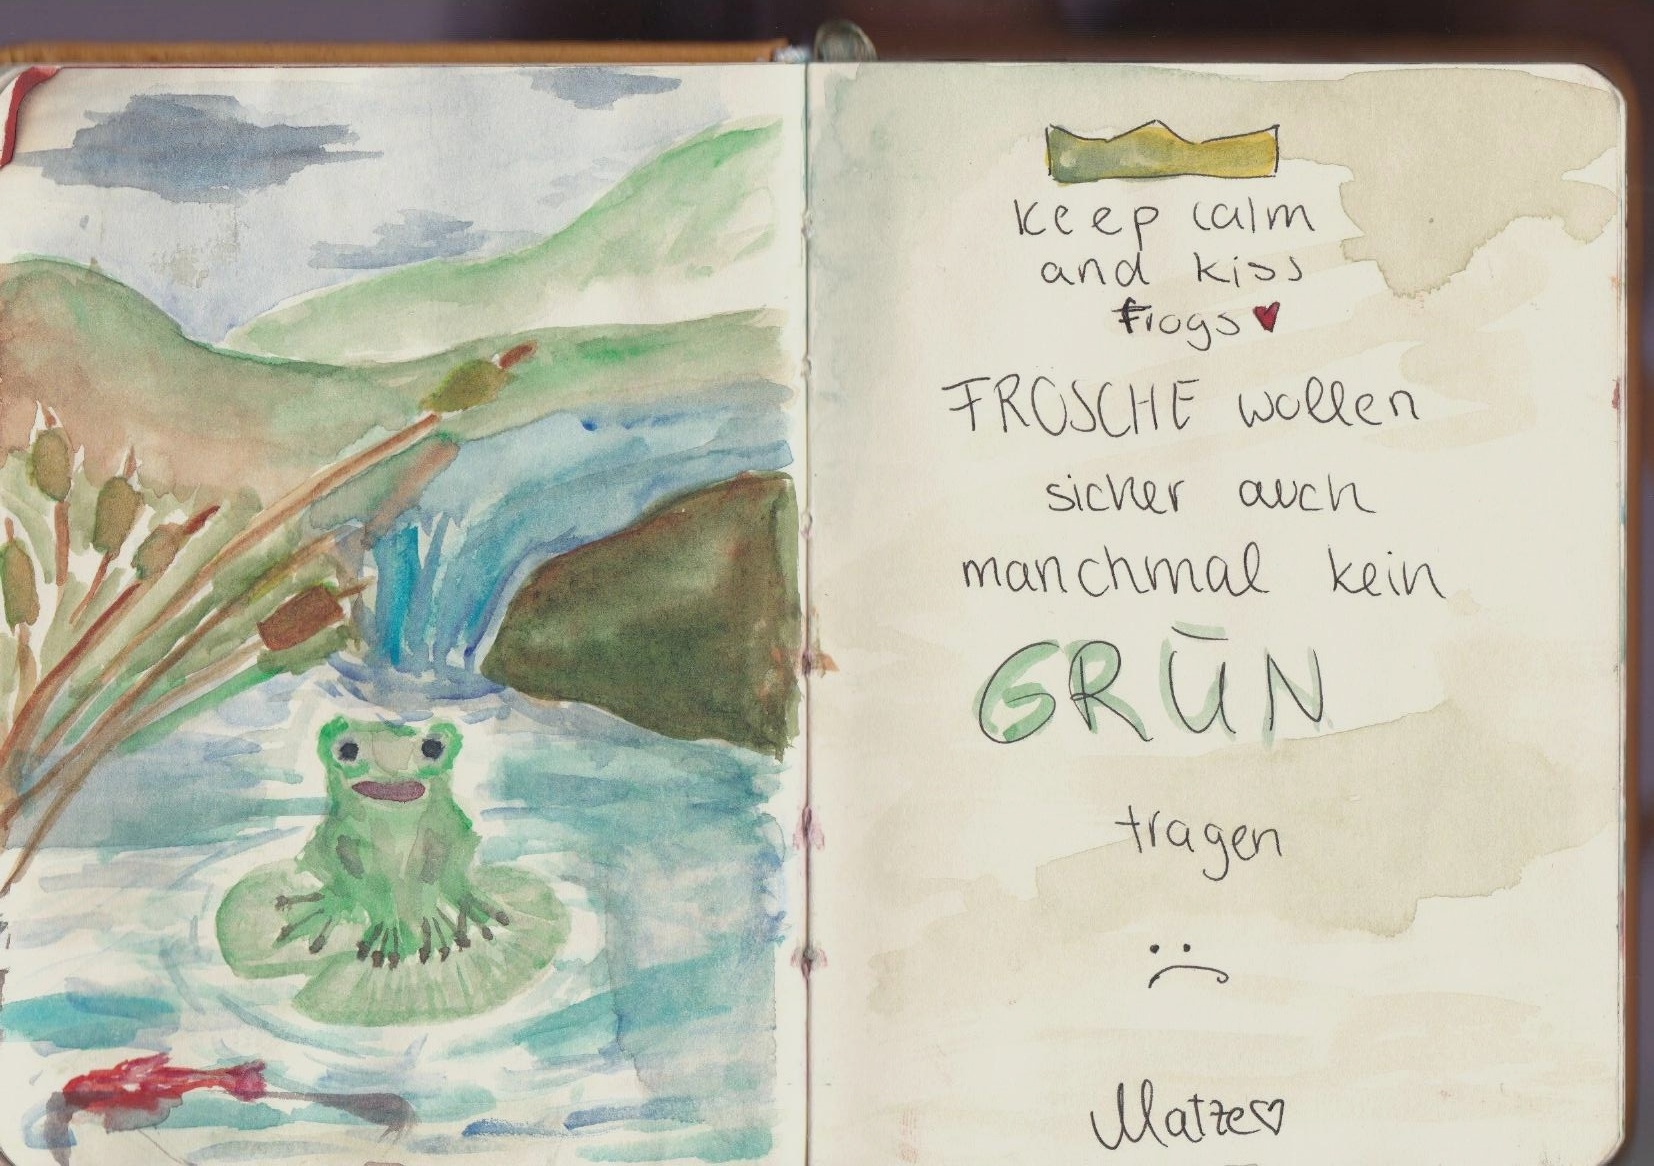 keep calm
and kiss
frogs♥
FRÖSCHE wollen
sicher auch
manchmal kein
GRÜN
tragen
:(
Matze♡